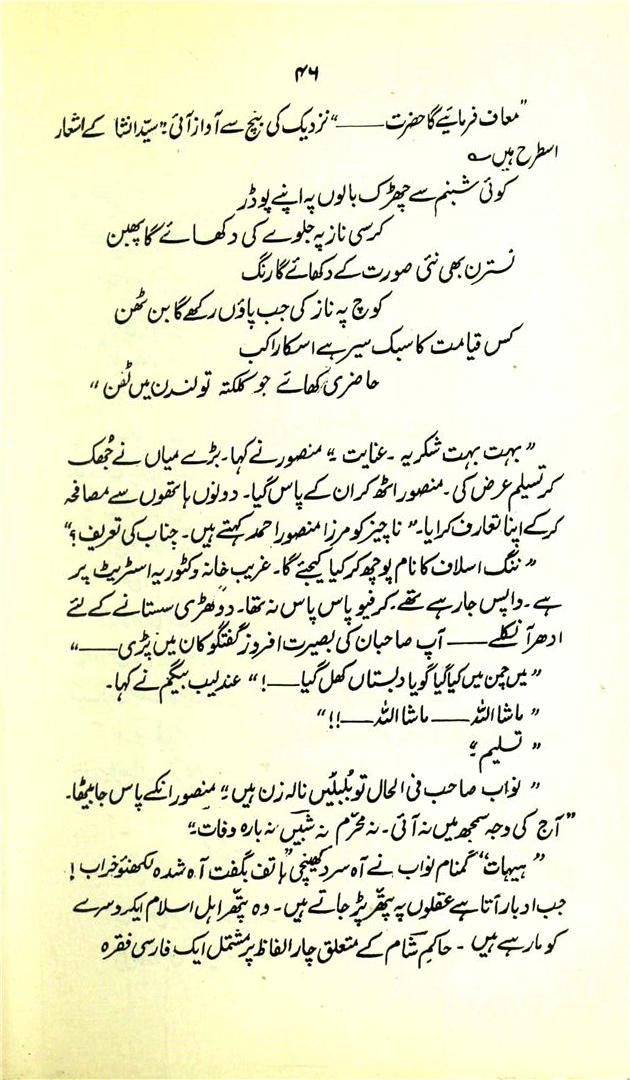 ۴۶
"معاف فرمائیے گا حضرت ——" نزدیک کی بنچ سے آواز آئی: "سیّد انشا کے اشعار
اسطرح ہیں ؎
کوئی شبنم سے چھڑک بالوں پہ اپنے پوڈر
کرسی ناز پہ جلوے کی دکھائے گا پھبن
نسترن بھی نئی صورت کے دکھائے گا رنگ
کوچ پہ ناز کی جب پاؤں رکھے گا بن ٹھن
کس قیامت کا سبک سیر ہے اسکا راکب
حاضری کھائے جو کلکتہ تو لندن میں ٹفن"
"بہت بہت شکریہ۔ عنایت۔" منصور نے کہا۔ بڑے میاں نے جُھک
کر تسلیم عرض کی۔ منصور اٹھ کر ان کے پاس گیا۔ دونوں ہاتھوں سے مصافحہ
کرکے اپنا تعارف کرایا۔ "ناچیز کو مرزا منصور احمد کہتے ہیں۔ جناب کی تعریف؟"
"ننگ اسلاف کا نام پوچھ کر کیا کیجئے گا۔ غریب خانہ وکٹوریہ اسٹریٹ پر
ہے۔ واپس جا رہے تھے۔ کرفیو پاس پاس نہ تھا۔ دو گھڑی سستانے کے لئے
ادھر آ نکلے —— آپ صاحبان کی بصیرت افروز گفتگو کان میں پڑی ——"
"میں چمن میں کیا گیا گویا دبستاں کھل گیا ——!" عندلیب بیگم نے کہا۔
"ماشااللہ —— ماشااللہ ——!!"
"تسلیم۔"
"نواب صاحب فی الحال تو بُلبُلیں نالہ زن ہیں۔" منصور انکے پاس جا بیٹھا۔
"آج کی وجہ سمجھ میں نہ آئی۔ نہ محرّم نہ شبیں نہ بارہ وفات۔"
"ہیہات" گمنام نواب نے آہ سرد کھینچی "ہاتف بگفت آہ شدہ لکھنئو خراب!
جب ادبار آتا ہے عقلوں پہ پتھّر پڑ جاتے ہیں۔ وہ پتھّر اہل اسلام ایکدوسرے
کو مار رہے ہیں۔ حاکمِ شام کے متعلق چار الفاظ پر مشتمل ایک فارسی فقرہ